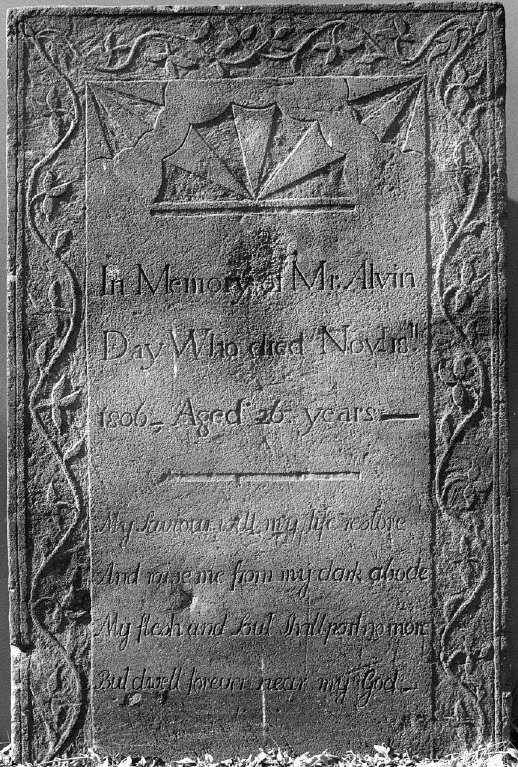 In Memory of Mr. Alvin
Day Who died Nov. 18th
1806. Aged 26 years
My Saviour will my life restore
And raise me from my dark abode
My flesh and Soul Shall part no more
But dwell forever near my God